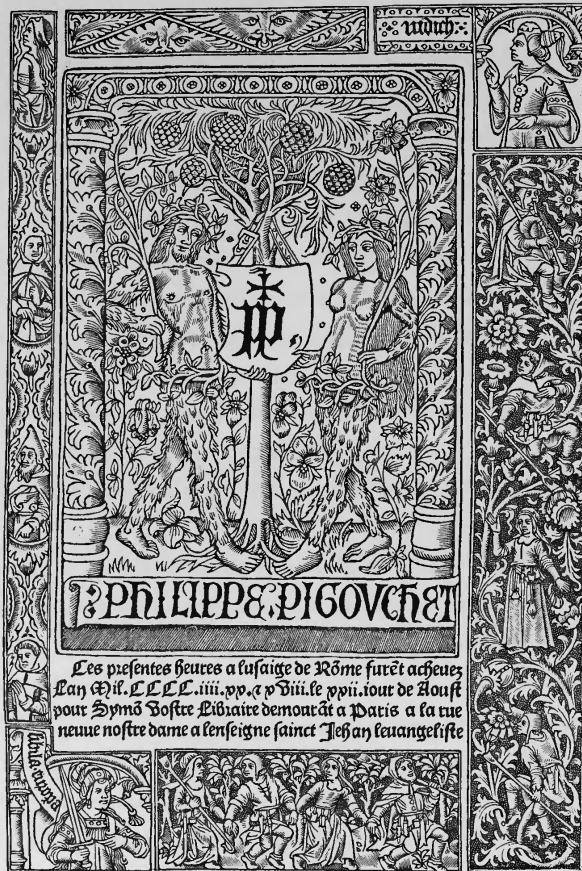 iudich
pp
PHILIPPE.PIGOVCHET
Ces presentes heures a lusaige de Rõme furẽt acheuez
Lan Mil.CCCC.iiii.xx.⁊ xViii.le xxii.iour de Aoust
pour Symõ Vostre Libraire demourãt a Paris a la rue
neuue nostre dame a lenseigne sainct Jehan leuangeliste
sibila